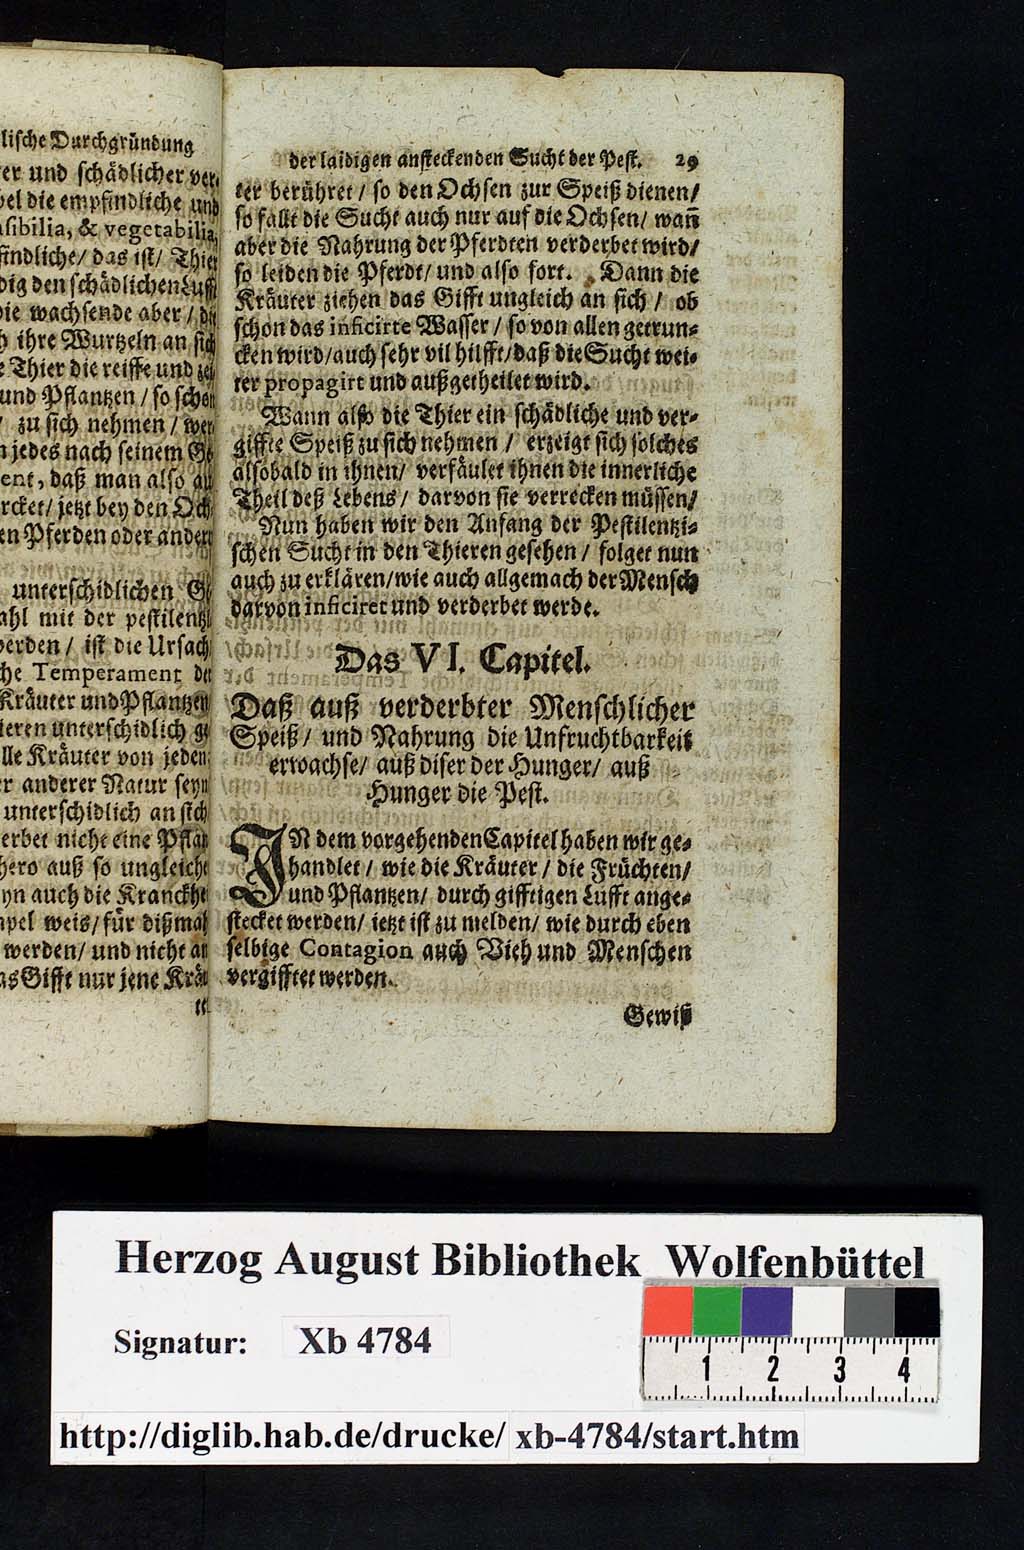 lische Durchgründung
er und schädlicher ver-
el die empfindliche und
sibilia, & vegetabilia,
findliche/ das ist/ Thier
dig den schädlichen Lufft
ie wachsende aber / die
h ihre Wurtzeln an sich
e Thier die reiffe und zei-
und Pflantzen / so schon
/ zu sich nehmen / wer-
n jedes nach seinem Ge-
ent, daß man also au
rcket/ jetzt bey den Och-
en Pferden oder andern
unterschidlichen Ge-
ahl mit der pestilentzi-
erden / ist die Ursach
he Temperament der
Kräuter und Pflantzen
ieren unterschidlich ge-
lle Kräuter von jeden
r anderer Natur seyn
unterschidlich an sich
erbet nicht eine Pflan-
hero auß so ungleiche
yn auch die Kranckhe
pel weis/ für dißmal
werden/ und nicht an
as Gifft nur jene Kräu-
te
der laidigen ansteckenden Sucht der Pest. 29
ter berühret / so den Ochsen zur Speiß dienen/
so fallt die Sucht auch nur auf die Ochsen/ wañ
aber die Nahrung der Pferdten verderbet wird/
so leiden die Pferdt/ und also fort. Dann die
Kräuter ziehen das Gifft ungleich an sich / ob
schon das inficirte Wasser / so von allen getrun-
cken wird/ auch sehr vil hilfft/ daß die Sucht wei-
ter propagirt und außgetheilet wird.
Wann also die Thier ein schädliche und ver-
giffte Speiß zu sich nehmen / erzeigt sich solches
alsobald in ihnen/ verfäulet ihnen die innerliche
Theil deß Lebens/ darvon sie verrecken müssen/
Nun haben wir den Anfang der Pestilentzi-
schen Sucht in den Thieren gesehen / folget nun
auch zu erklären/ wie auch allgemach der Mensch
darvon inficiret und verderbet werde.
Das VI. Capitel.
Daß auß verderbter Menschlicher
Speiß/ und Nahrung die Unfruchtbarkeit
erwachse/ auß diser der Hunger/ auß
Hunger die Pest.
IN dem vorgehenden Capitel haben wir ge-
handlet / wie die Kräuter / die Früchten/
und Pflantzen/ durch gifftigen Lufft ange-
stecket werden/ jetzt ist zu melden/ wie durch eben
selbige Contagion auch Vieh und Menschen
vergifftet werden.
Gewiß
Herzog August Bibliothek Wolfenbüttel
Signatur: Xb 4784
1 2 3 4
http://diglib.hab.de/drucke/ xb-4784/start.htm